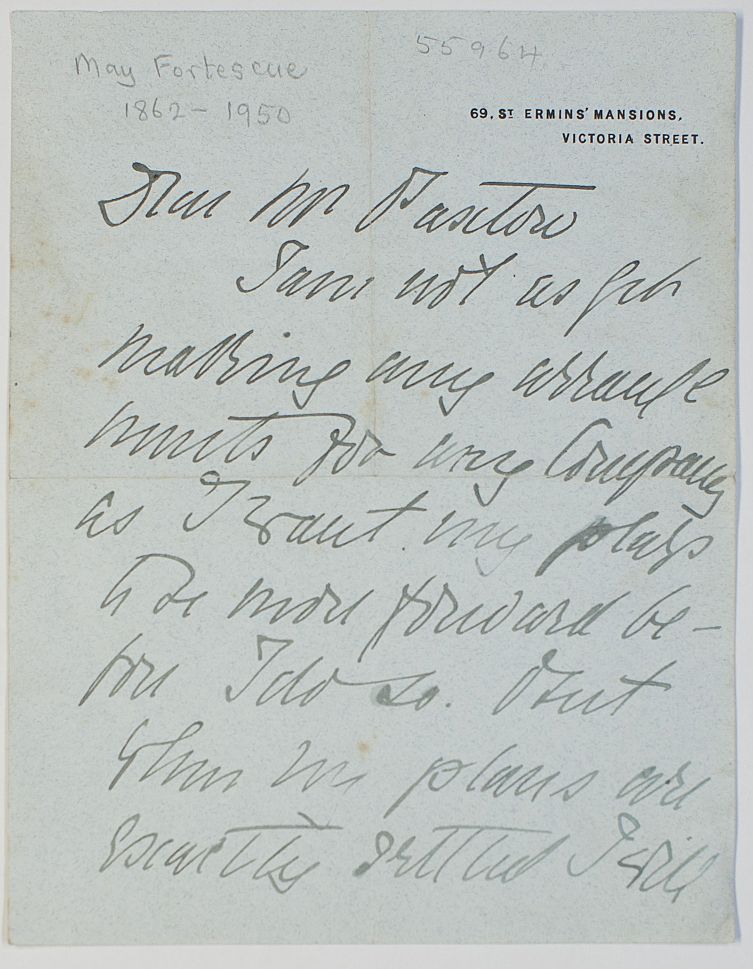 May Fortescue
1862 - 1950
55964
69, ST ERMINS' MANSIONS,
VICTORIA STREET.
Dear Mr
I am not as yet
making any arrange
ments for any Company
as I want my plays
to be more forward be-
fore I do so. But
when my plans are
exactly settled I will